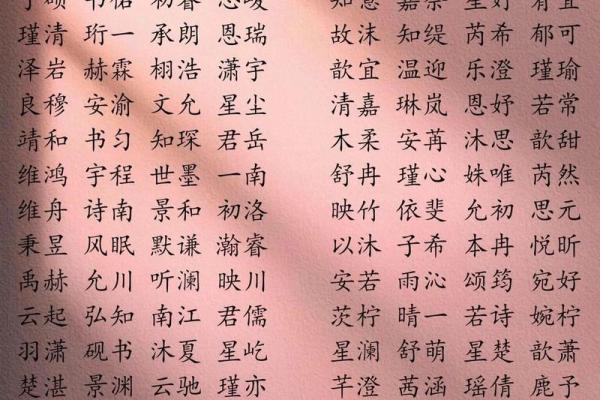 瑾清 珩一 承朗 恩瑞
泽岩 赫霖 栩浩 潇宇
良穆 安渝 文允 星尘
靖和 书匀 知琛 君岳
维鸿 宇程 世墨 一南
维舟 诗南 景和 初洛
秉昱 风眠 默谦 瀚睿
禹赫 允川 听澜 映川
云起 弘知 南江 君儒
羽潇 砚书 沐夏 星屹
楚湛 景渊 云驰 瑾亦
故沫 知缇 芮希 郁可
歆宜 温迎 乐澄 瑾瑜
清嘉 琳岚 恩妤 若常
木柔 安苒 沐思 歆甜
舒冉 瑾心 姝唯 芮然
映竹 依斐 允初 思元
以沐 子希 本冉 悦昕
安若 雨沁 颂筠 宛好
茨柠 晴一 若诗 婉柠
星澜 舒萌 星楚 歆萧
芊澄 茜涵 瑶倩 鹿予